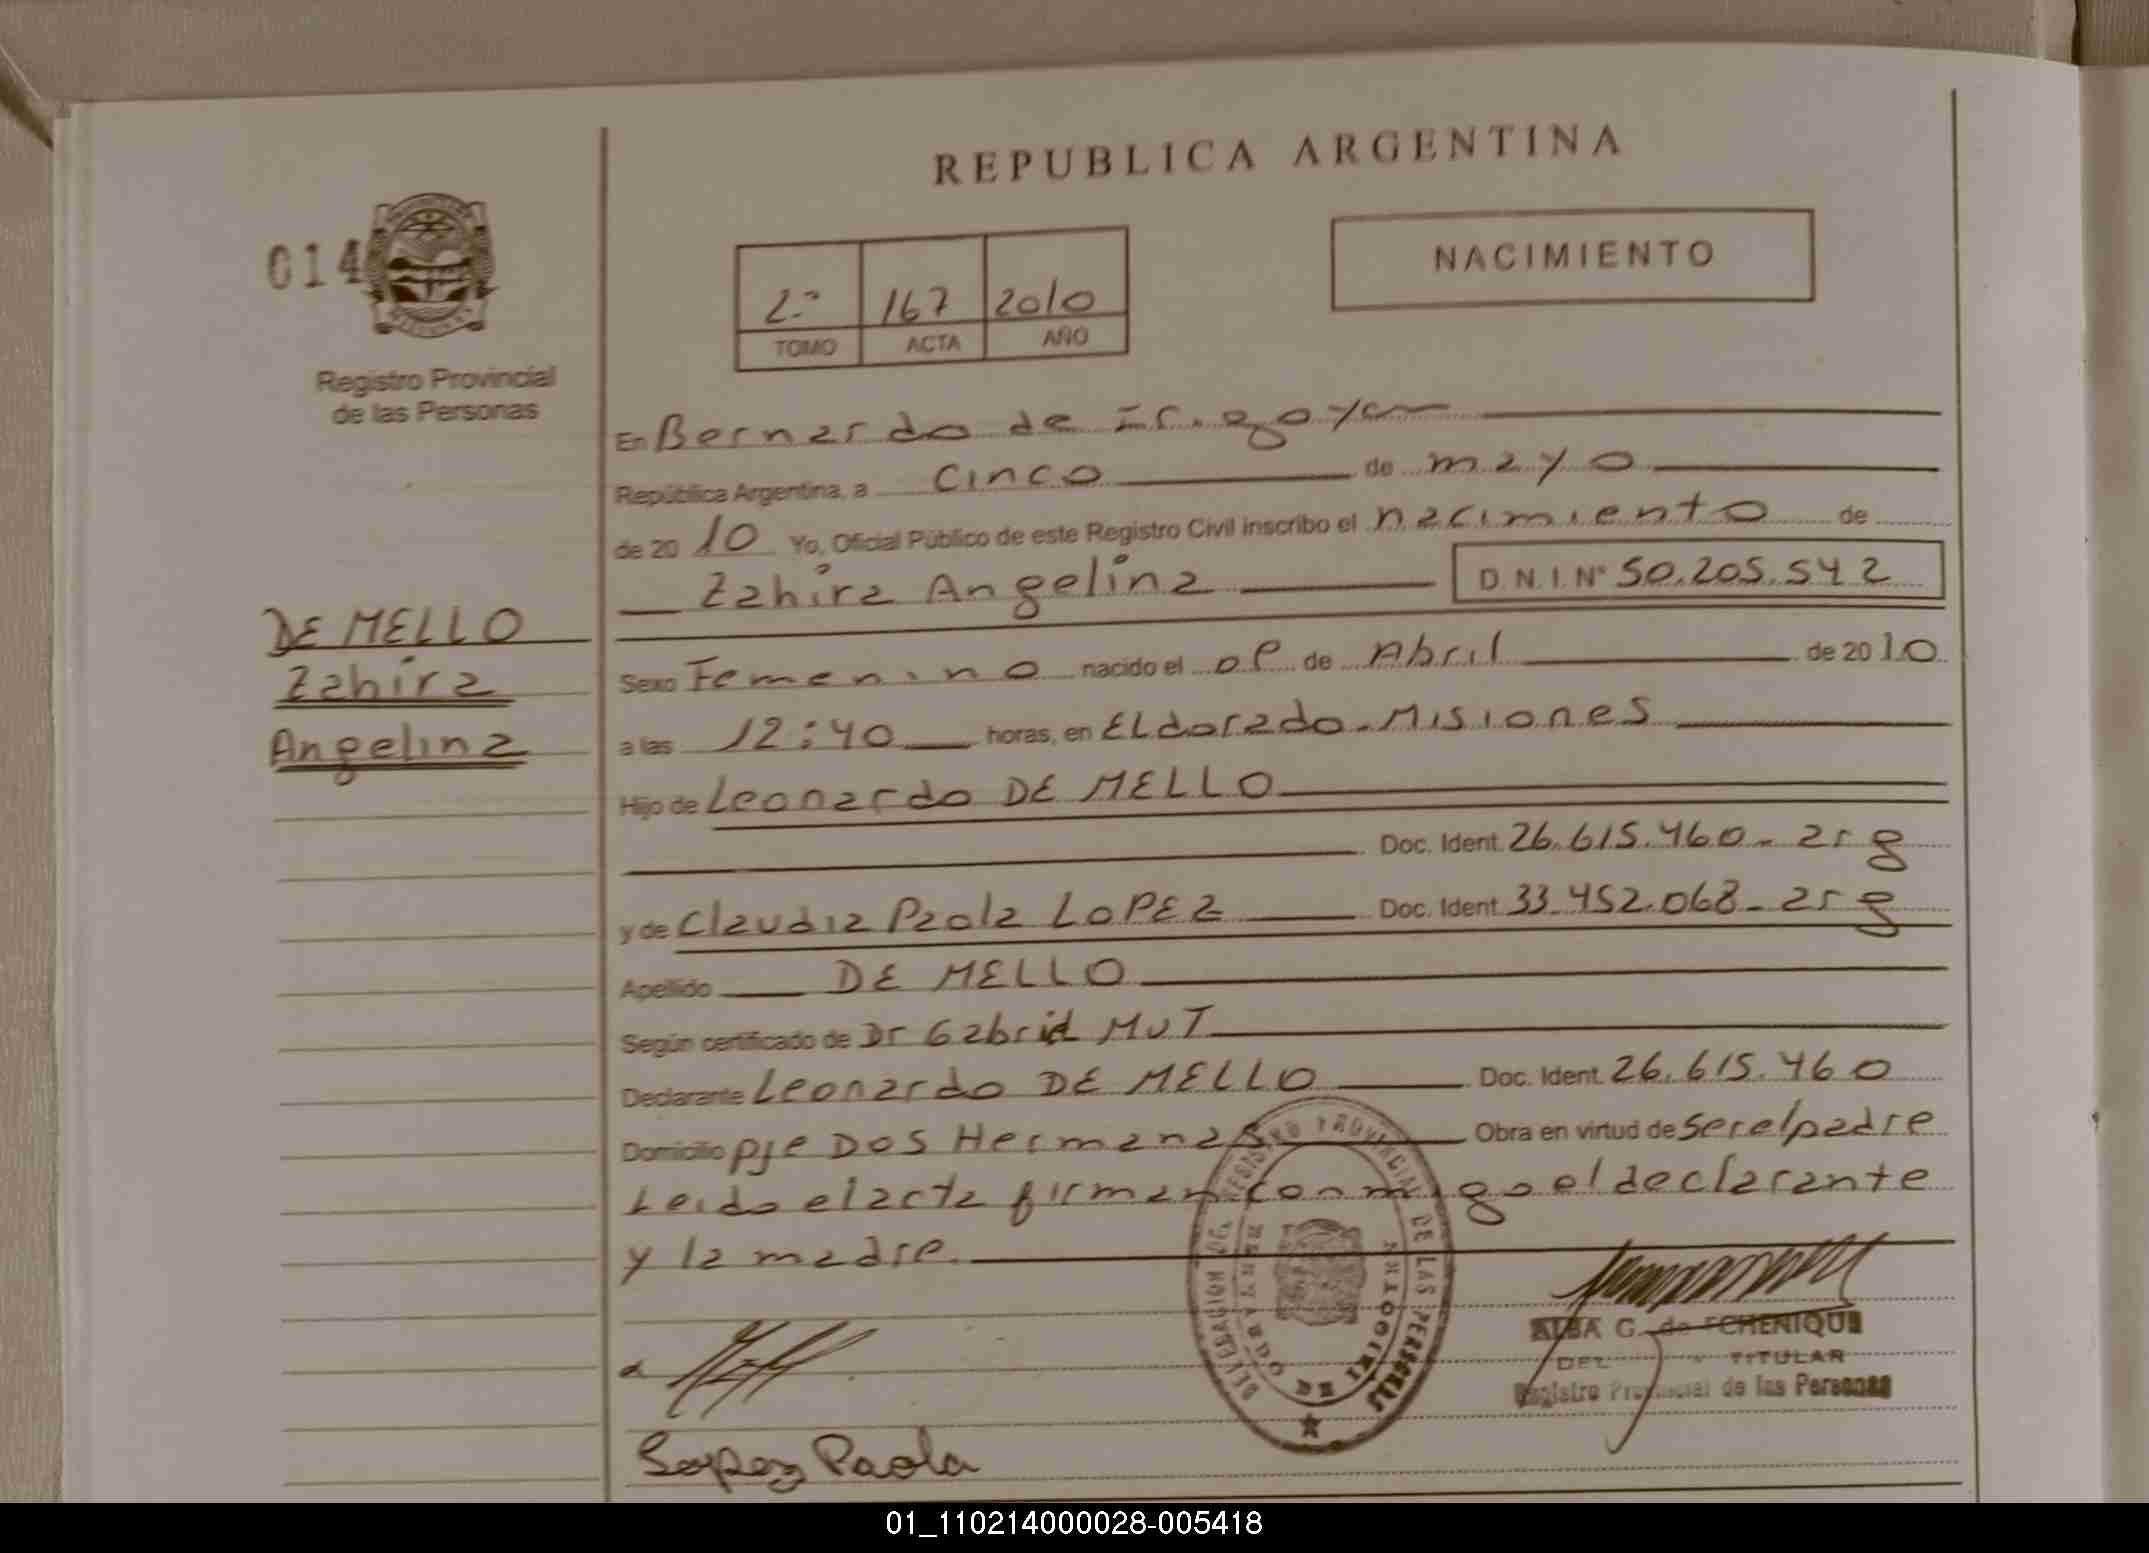 REPUBLICA ARGENTINA
014
NACIMIENTO
2º 167 2010
TOMO ACTA AÑO
Registro Provincial
de las Personas
En Bernardo de Irigoyen
República Argentina, a cinco de mayo
de 2010 Yo, Oficial Público de este Registro Civil inscribo el nacimiento de
Zahira Angelina D.N.I.Nº 50.205.542
DE MELLO
Zahira
Angelina
Sexo Femenino nacido el de Abril de 2010
a las 12:40 horas, en ELdorado-Misiones
Hijo de Leonardo DE MELLO
Doc. Ident. 26.615.460- arg
y de Claudia Paola LOPEZ Doc. Ident. 33.452.068- arg
Apellido DE MELLO
Según certificado de Dr Gabriel MUT
Declarante Leonardo DE MELLO Doc. Ident. 26.615.460
Domicilio pje DOS Hermanas Obra en virtud de ser el padre
Leido el acta firman conmigo el declarante
y la madre.
DELEGACION DEL REGISTRO PROVINCIAL DE LAS PERSONAS
BERNARDO DE IRIGOYEN
ALBA G. de ECHENIQUE
TITULAR
Registro Provincial de las Personas
Lopez Paola
01_110214000028-005418